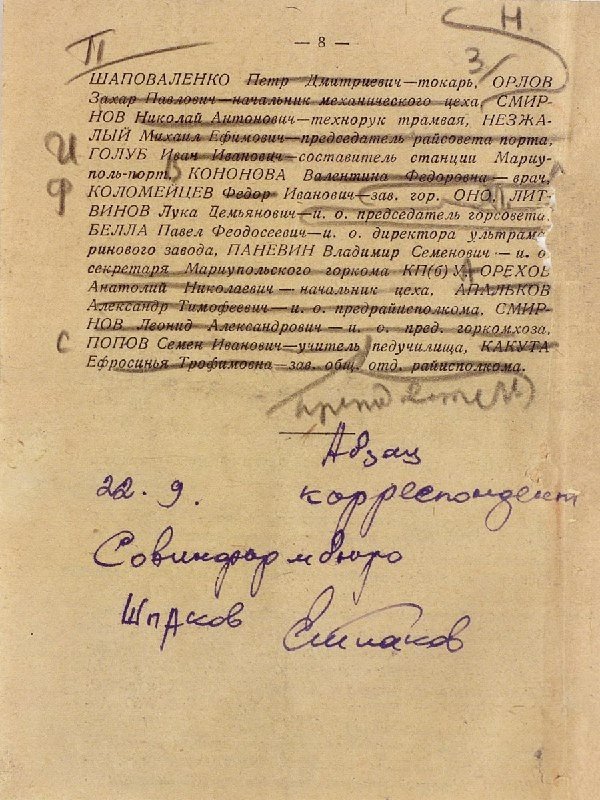 — 8 —
Н.
П
3/
ШАПОВАЛЕНКО Петр Дмитриевич—токарь, ОРЛОВ
Захар Павлович—начальник механического цеха, СМИР-
НОВ Николай Антонович—технорук трамвая, НЕЗЖА-
ЛЫЙ Михаил Ефимович—председатель райсовета порта,
И ГОЛУБ Иван Иванович—составитель станции Мариу-
поль-порт, КОНОНОВА Валентина Федоровна—врач,
Ф КОЛОМЕЙЦЕВ Федор Иванович—зав. гор. ОНО, ЛИТ-
ВИНОВ Лука Демьянович—и. о. председатель горсовета,
БЕЛЛА Павел Феодосеевич—и. о. директора ультрама-
ринового завода, ПАНЕВИН Владимир Семенович—и. о.
секретаря Мариупольского горкома КП(б)У, ОРЕХОВ
Анатолий Николаевич—начальник цеха, АПАЛЬКОВ
Александр Тимофеевич—и. о. предрайисполкома, СМИР-
НОВ Леонид Александрович—и. о. пред. горкомхоза,
С ПОПОВ Семен Иванович—учитель педучилища, КАКУТА
Ефросинья Трофимовна—зав. общ. отд. райисполкома.
Абзац
22. 9. корреспондент
Совинформбюро
Шпаков